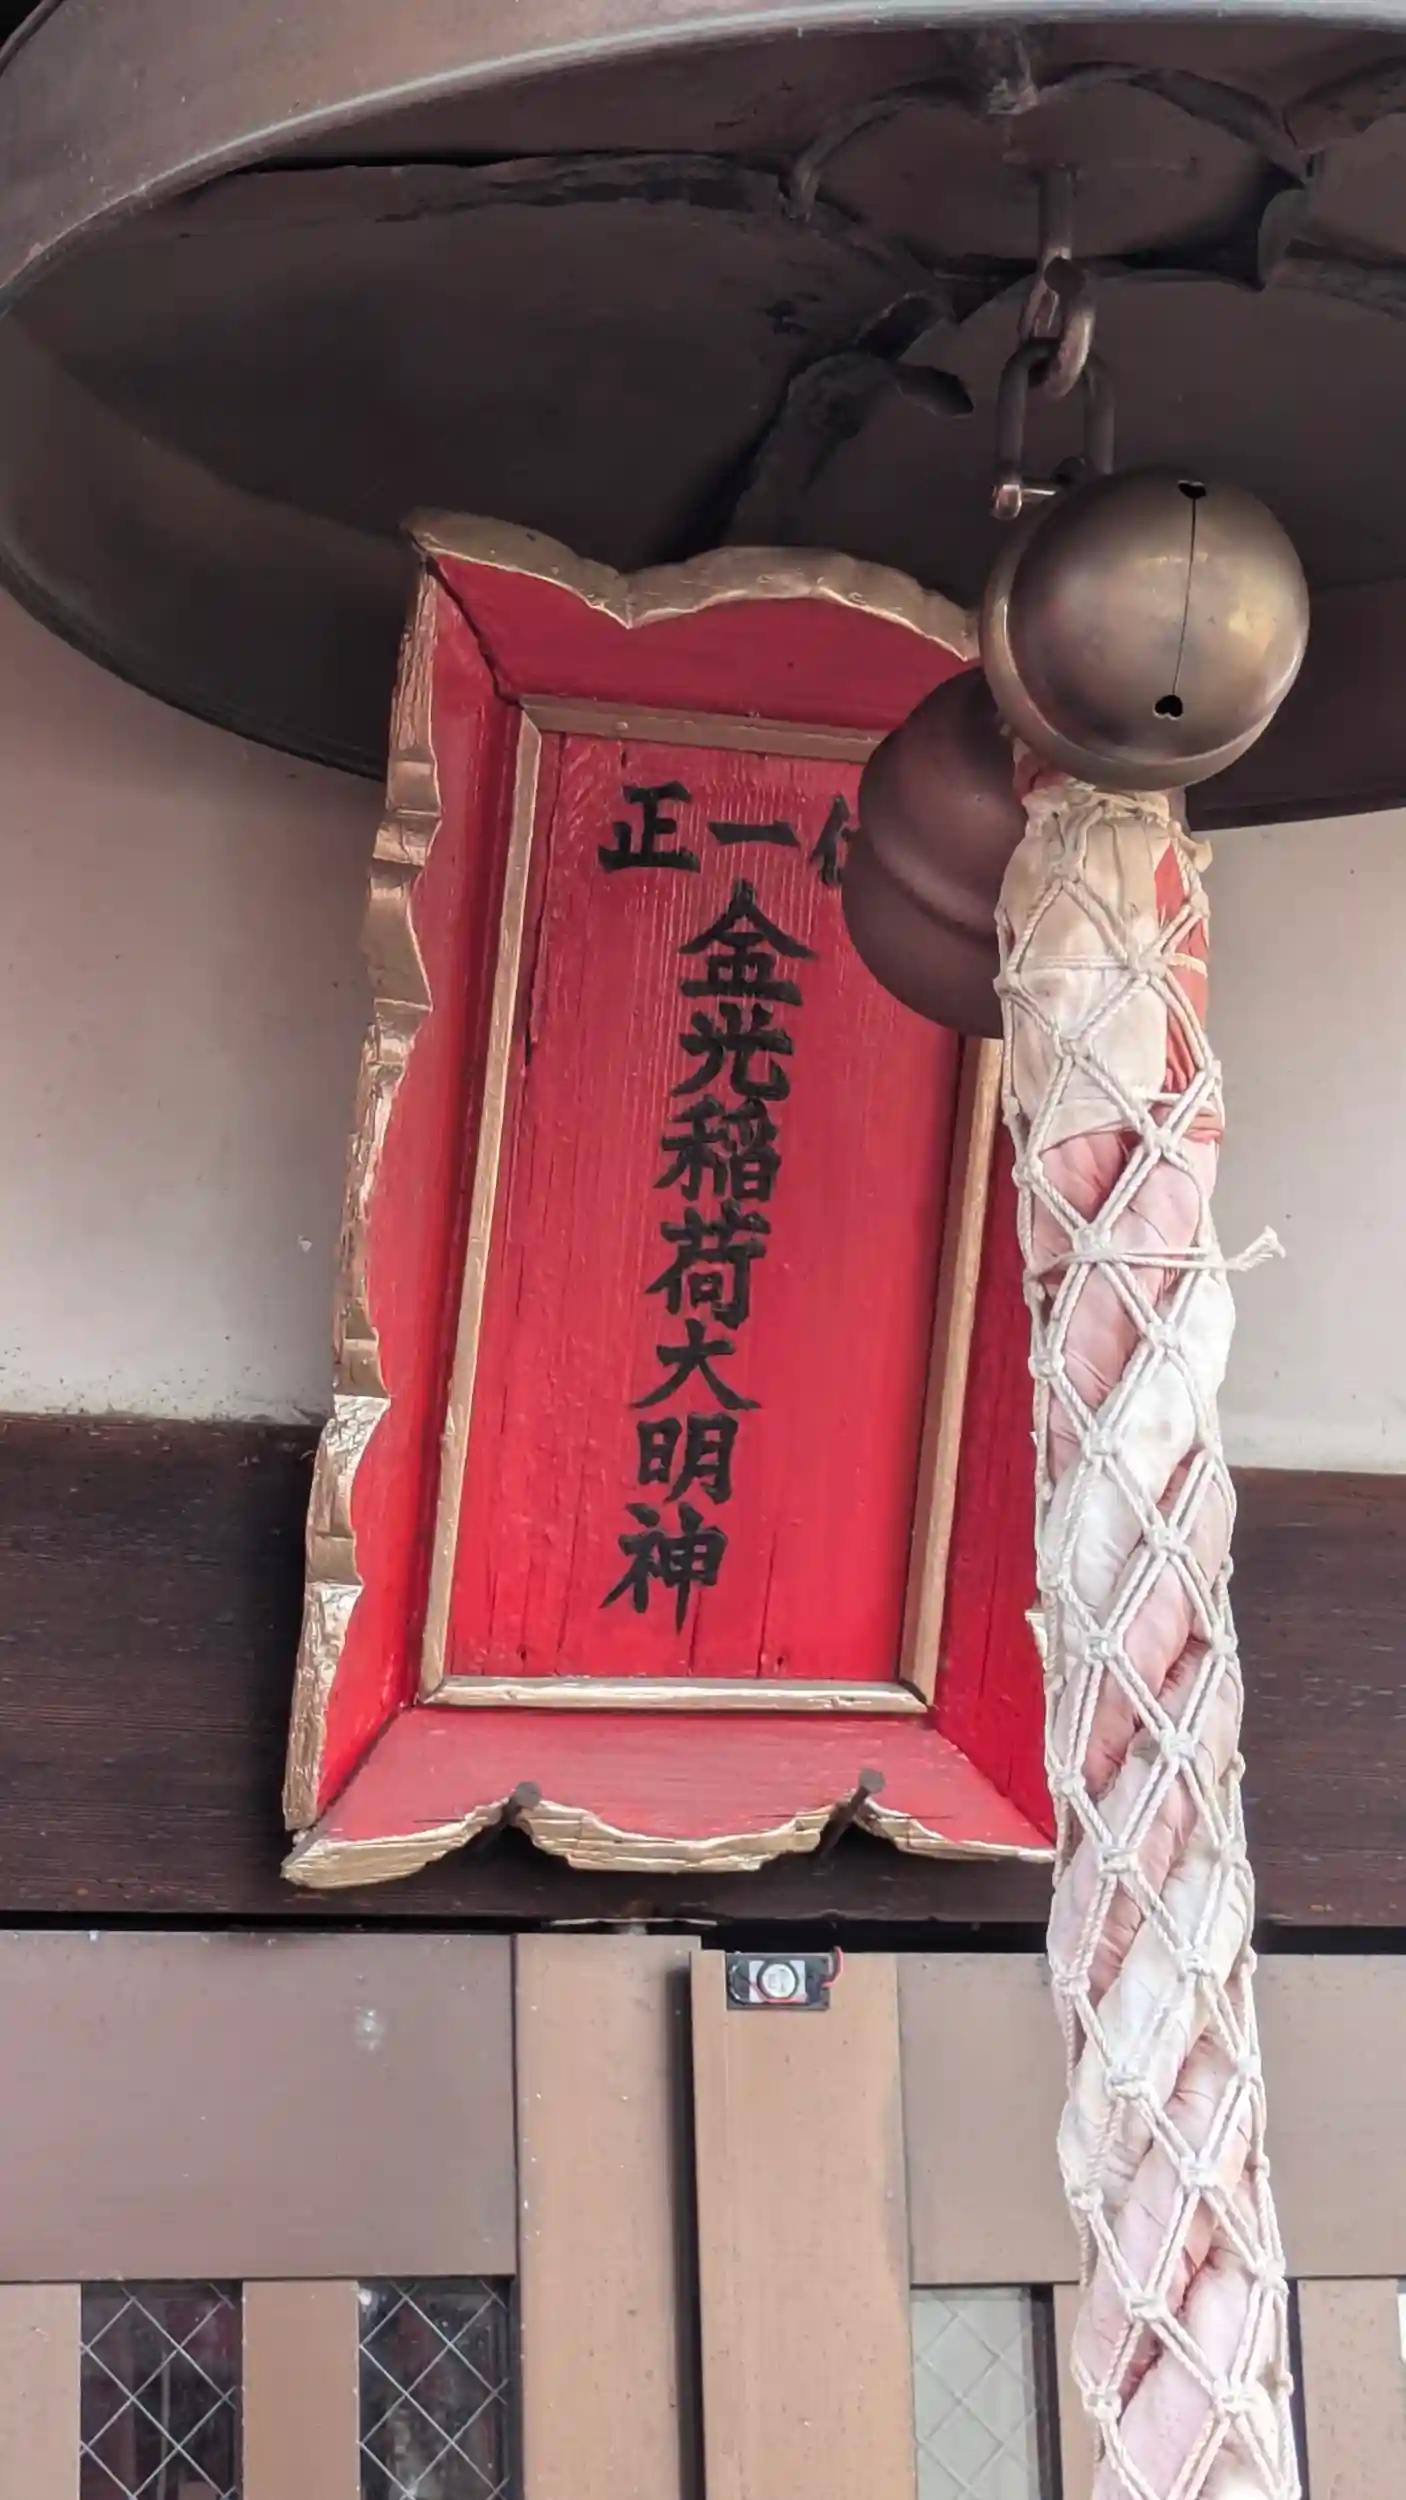 正一位
金光稲荷大明神